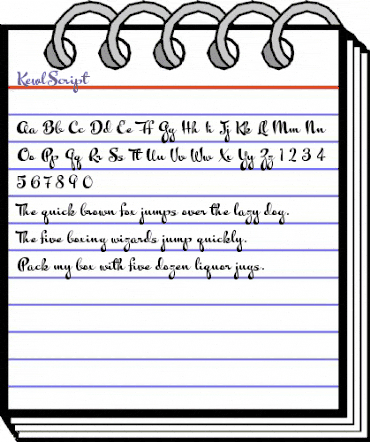 Kewl Script
Aa Bb Cc Dd Ee Ff Gg Hh Ii Jj Kk Ll Mm Nn
Oo Pp Qq Rr Ss Tt Uu Vv Ww Xx Yy Zz 1 2 3 4
5 6 7 8 9 0
The quick brown fox jumps over the lazy dog.
The five boxing wizards jump quickly.
Pack my box with five dozen liquor jugs.